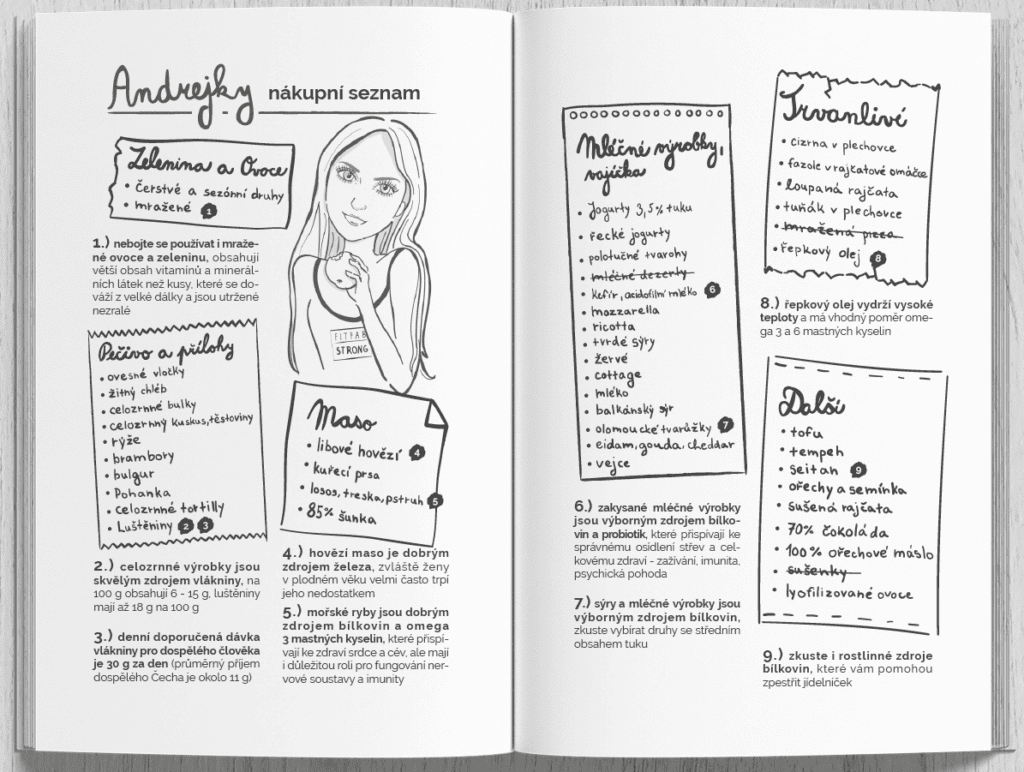 Andrejky nákupní seznam
Zelenina a Ovoce
• čerstvé a sezónní druhy
• mražené 1
1.) nebojte se používat i mraže-
né ovoce a zeleninu, obsahují
větší obsah vitamínů a minerál-
ních látek než kusy, které se do-
váží z velké dálky a jsou utržené
nezralé
Pečivo a přílohy
• ovesné vločky
• žitný chléb
• celozrnné bulky
• celozrnný kuskus, těstoviny
• rýže
• brambory
• bulgur
• Pohanka
• celozrnné tortilly
• Luštěniny 2 3
2.) celozrnné výrobky jsou
skvělým zdrojem vlákniny, na
100 g obsahují 6 - 15 g, luštěniny
mají až 18 g na 100 g
3.) denní doporučená dávka
vlákniny pro dospělého člověka
je 30 g za den (průměrný příjem
dospělého Čecha je okolo 11 g)
FITFAB
STRONG
Maso
• libové hovězí 4
• kuřecí prsa
• losos, treska, pstruh 5
• 85% šunka
4.) hovězí maso je dobrým
zdrojem železa, zvláště ženy
v plodném věku velmi často trpí
jeho nedostatkem
5.) mořské ryby jsou dobrým
zdrojem bílkovin a omega
3 mastných kyselin, které přispí-
vají ke zdraví srdce a cév, ale mají
i důležitou roli pro fungování ner-
vové soustavy a imunity
Mléčné výrobky,
vajíčka
• Jogurty 3,5% tuku
• řecké jogurty
• polotučné tvarohy
• mléčné dezerty
• kefír, acidofilní mléko 6
• mozzarella
• ricotta
• tvrdé sýry
• žervé
• cottage
• mléko
• balkánský sýr
• olomoucké tvarůžky 7
• eidam, gouda, cheddar
• vejce
6.) zakysané mléčné výrobky
jsou výborným zdrojem bílko-
vin a probiotik, které přispívají ke
správnému osídlení střev a cel-
kovému zdraví - zažívání, imunita,
psychická pohoda
7.) sýry a mléčné výrobky jsou
výborným zdrojem bílkovin,
zkuste vybírat druhy se středním
obsahem tuku
Trvanlivé
• cizrna v plechovce
• fazole v rajčatové omáčce
• loupaná rajčata
• tuňák v plechovce
• mražená pizza
• řepkový olej 8
8.) řepkový olej vydrží vysoké
teploty a má vhodný poměr ome-
ga 3 a 6 mastných kyselin
Další
• tofu
• tempeh
• seitan 9
• ořechy a semínka
• sušená rajčata
• 70% čokoláda
• 100% ořechové máslo
• sušenky
• lyofilizované ovoce
9.) zkuste i rostlinné zdroje
bílkovin, které vám pomohou
zpestřit jídelníček